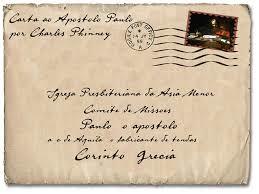 Carta ao Apostolo Paulo
por Charles Phinney
Igreja Presbiteriana da Asia Menor
Comite de Missoes
Paulo o apostolo
a c de Aquila o fabricante de tendas
Corinto Grecia